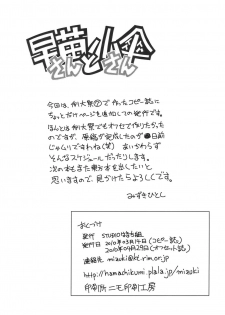 今回は、例大祭⑦で作ったコピー誌に
ちょっとだけページを追加しての発行です。
ほんとは例大祭でもオフセで作りたかった
のですが、原稿が完成したのが●日前
じゃムリですわね(笑) あいかわらず
そんなスケジュールだったりします。
次の本もまた東方本を出したいと
思いますので、見かけたらよろしくです。
みずきひとし
おくづけ
発行 STUDIOはちくま
発行日 2010年03月14日(コピー誌)
2010年09月29日(オフセット誌)
連絡先 mizuki@kt.rim.or.jp
http://hamachikumi.plala.jp/mizuki
印刷所 ニモ印刷工房